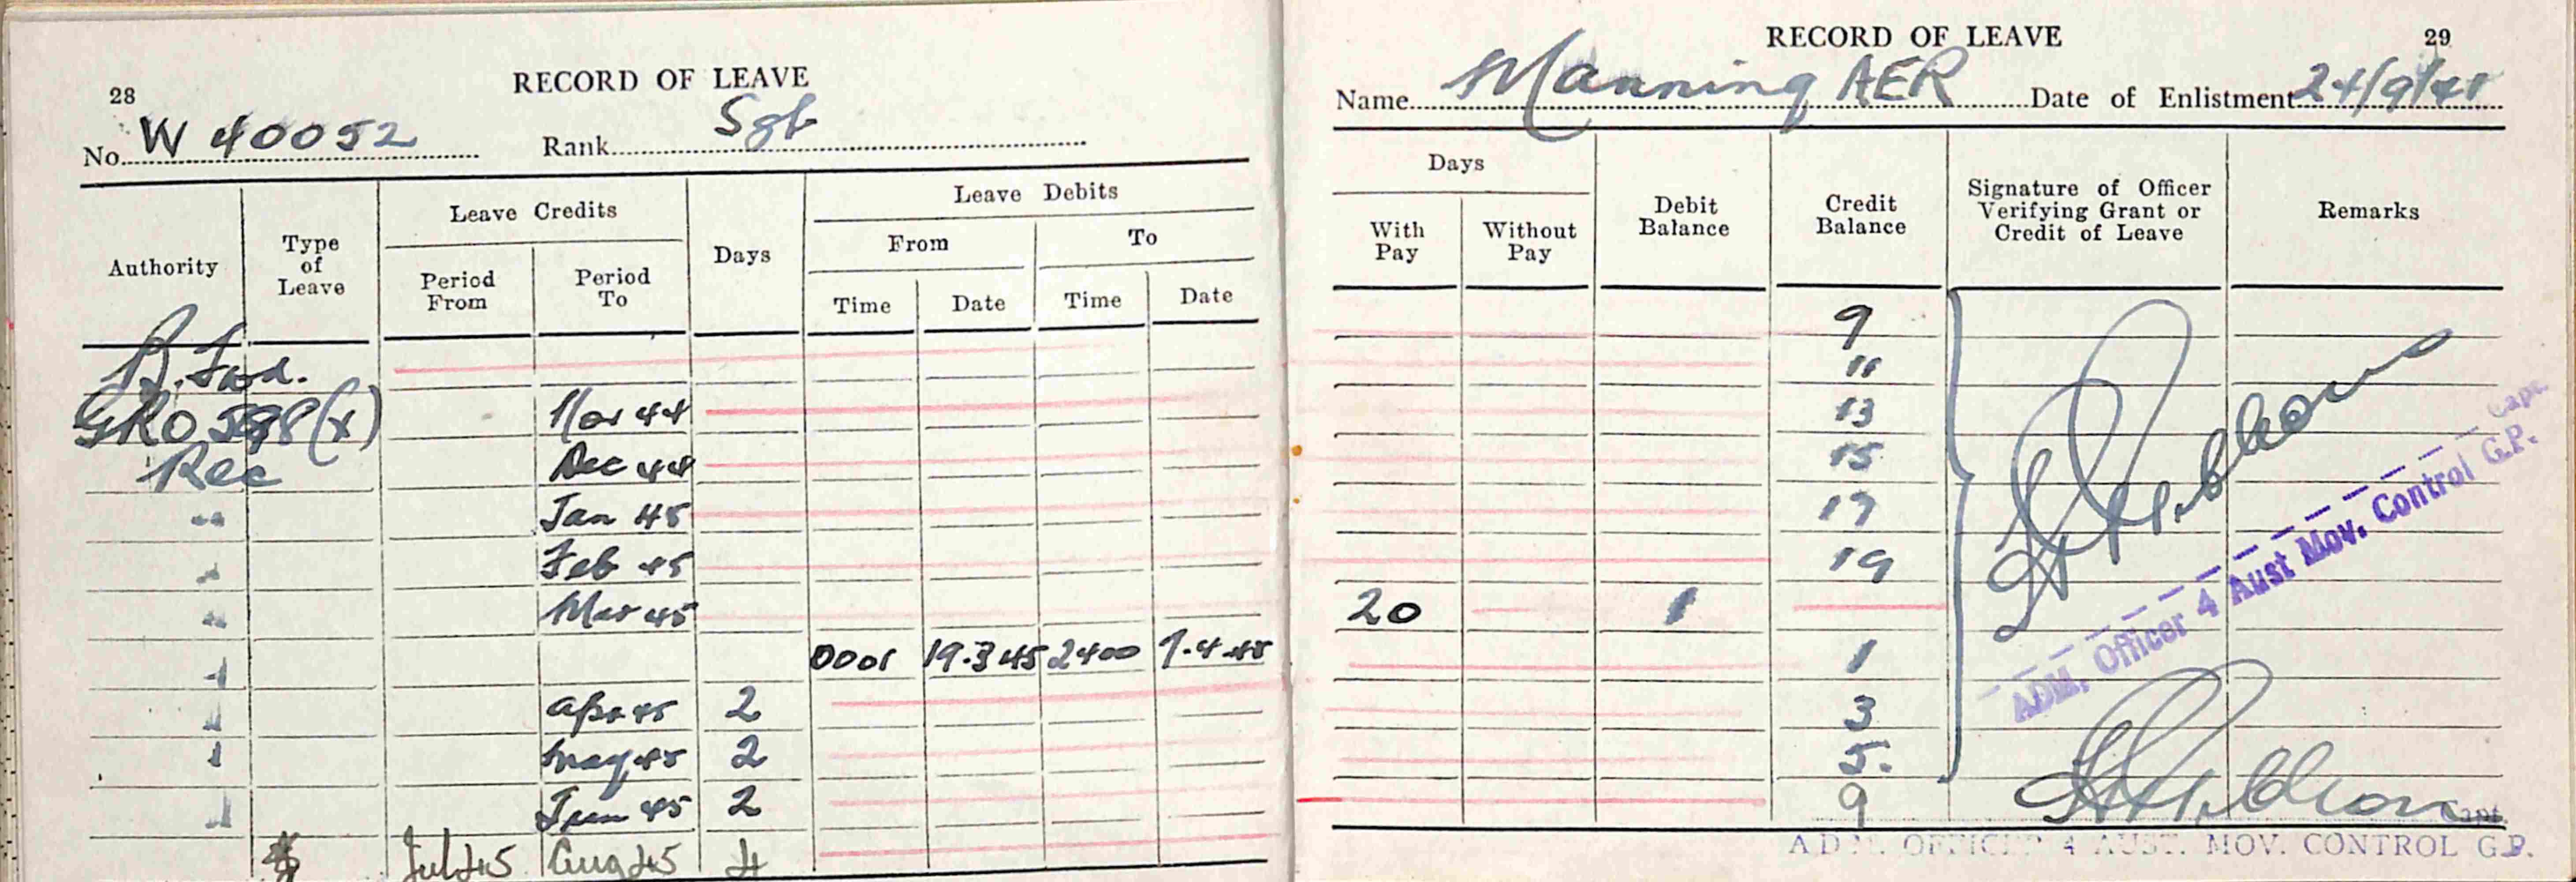 28
RECORD OF LEAVE
No. W 40052 Rank Sgt
Authority Type of Leave Leave Credits Period From Period To Days Leave Debits From Time Date To Time Date
B. Fwd.
GRO 598(x) Nov 44
Rec Dec 44
" Jan 45
" Feb 45
" Mar 45
" 0001 19.3.45 2400 7.4.45
" Apr 45 2
" May 45 2
" Jun 45 2
Jul 45 Aug 45 4
RECORD OF LEAVE 29
Name Manning AER Date of Enlistment 24/9/41
Days With Pay Without Pay Debit Balance Credit Balance Signature of Officer Verifying Grant or Credit of Leave Remarks
9
11
13
15
17
19
20 1
1
3
5.
9
Capt.
ADM. Officer 4 Aust Mov. Control G.P.
Capt.
ADM. OFFICER 4 AUST. MOV. CONTROL G.P.